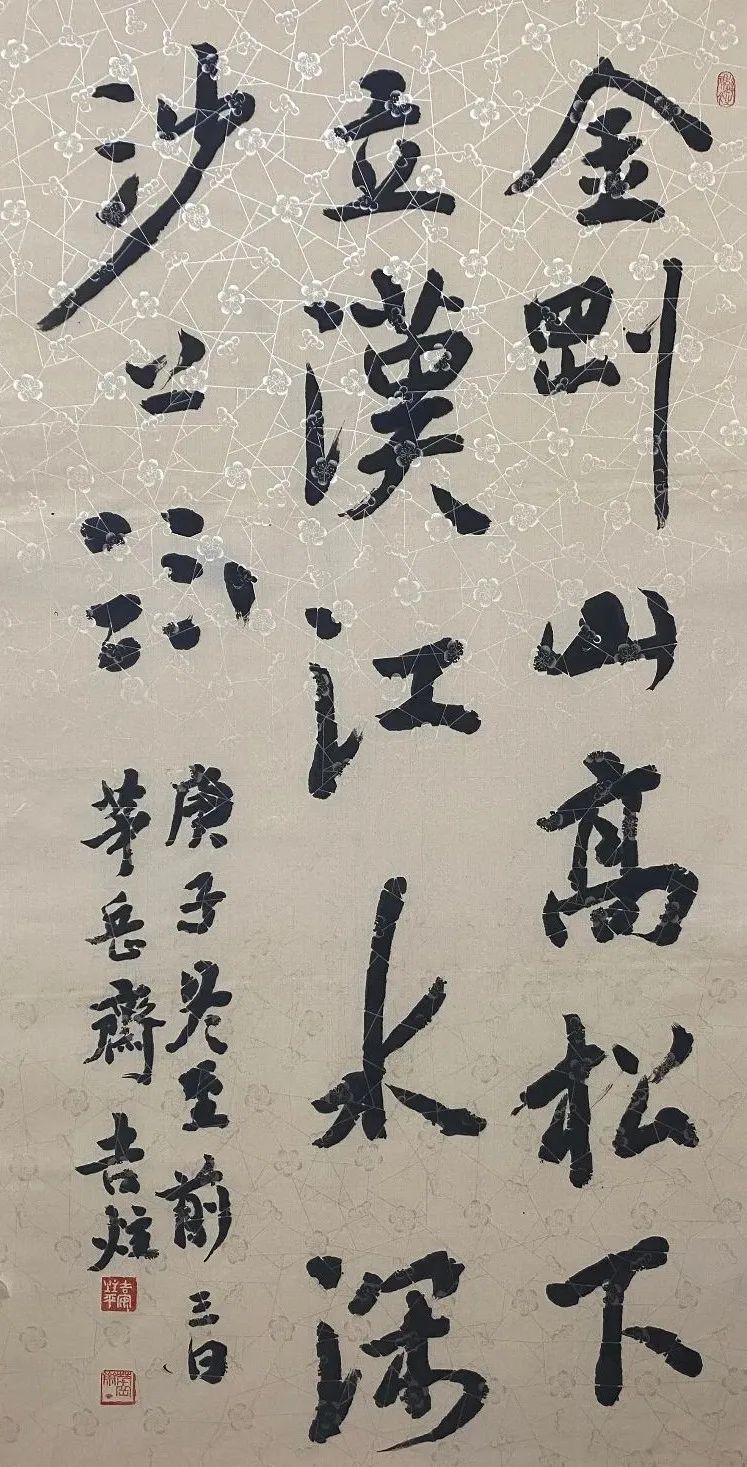 金剛山高松下
立漢江水深
沙上行
庚子冬至前三日
茅岳齋 吉炷